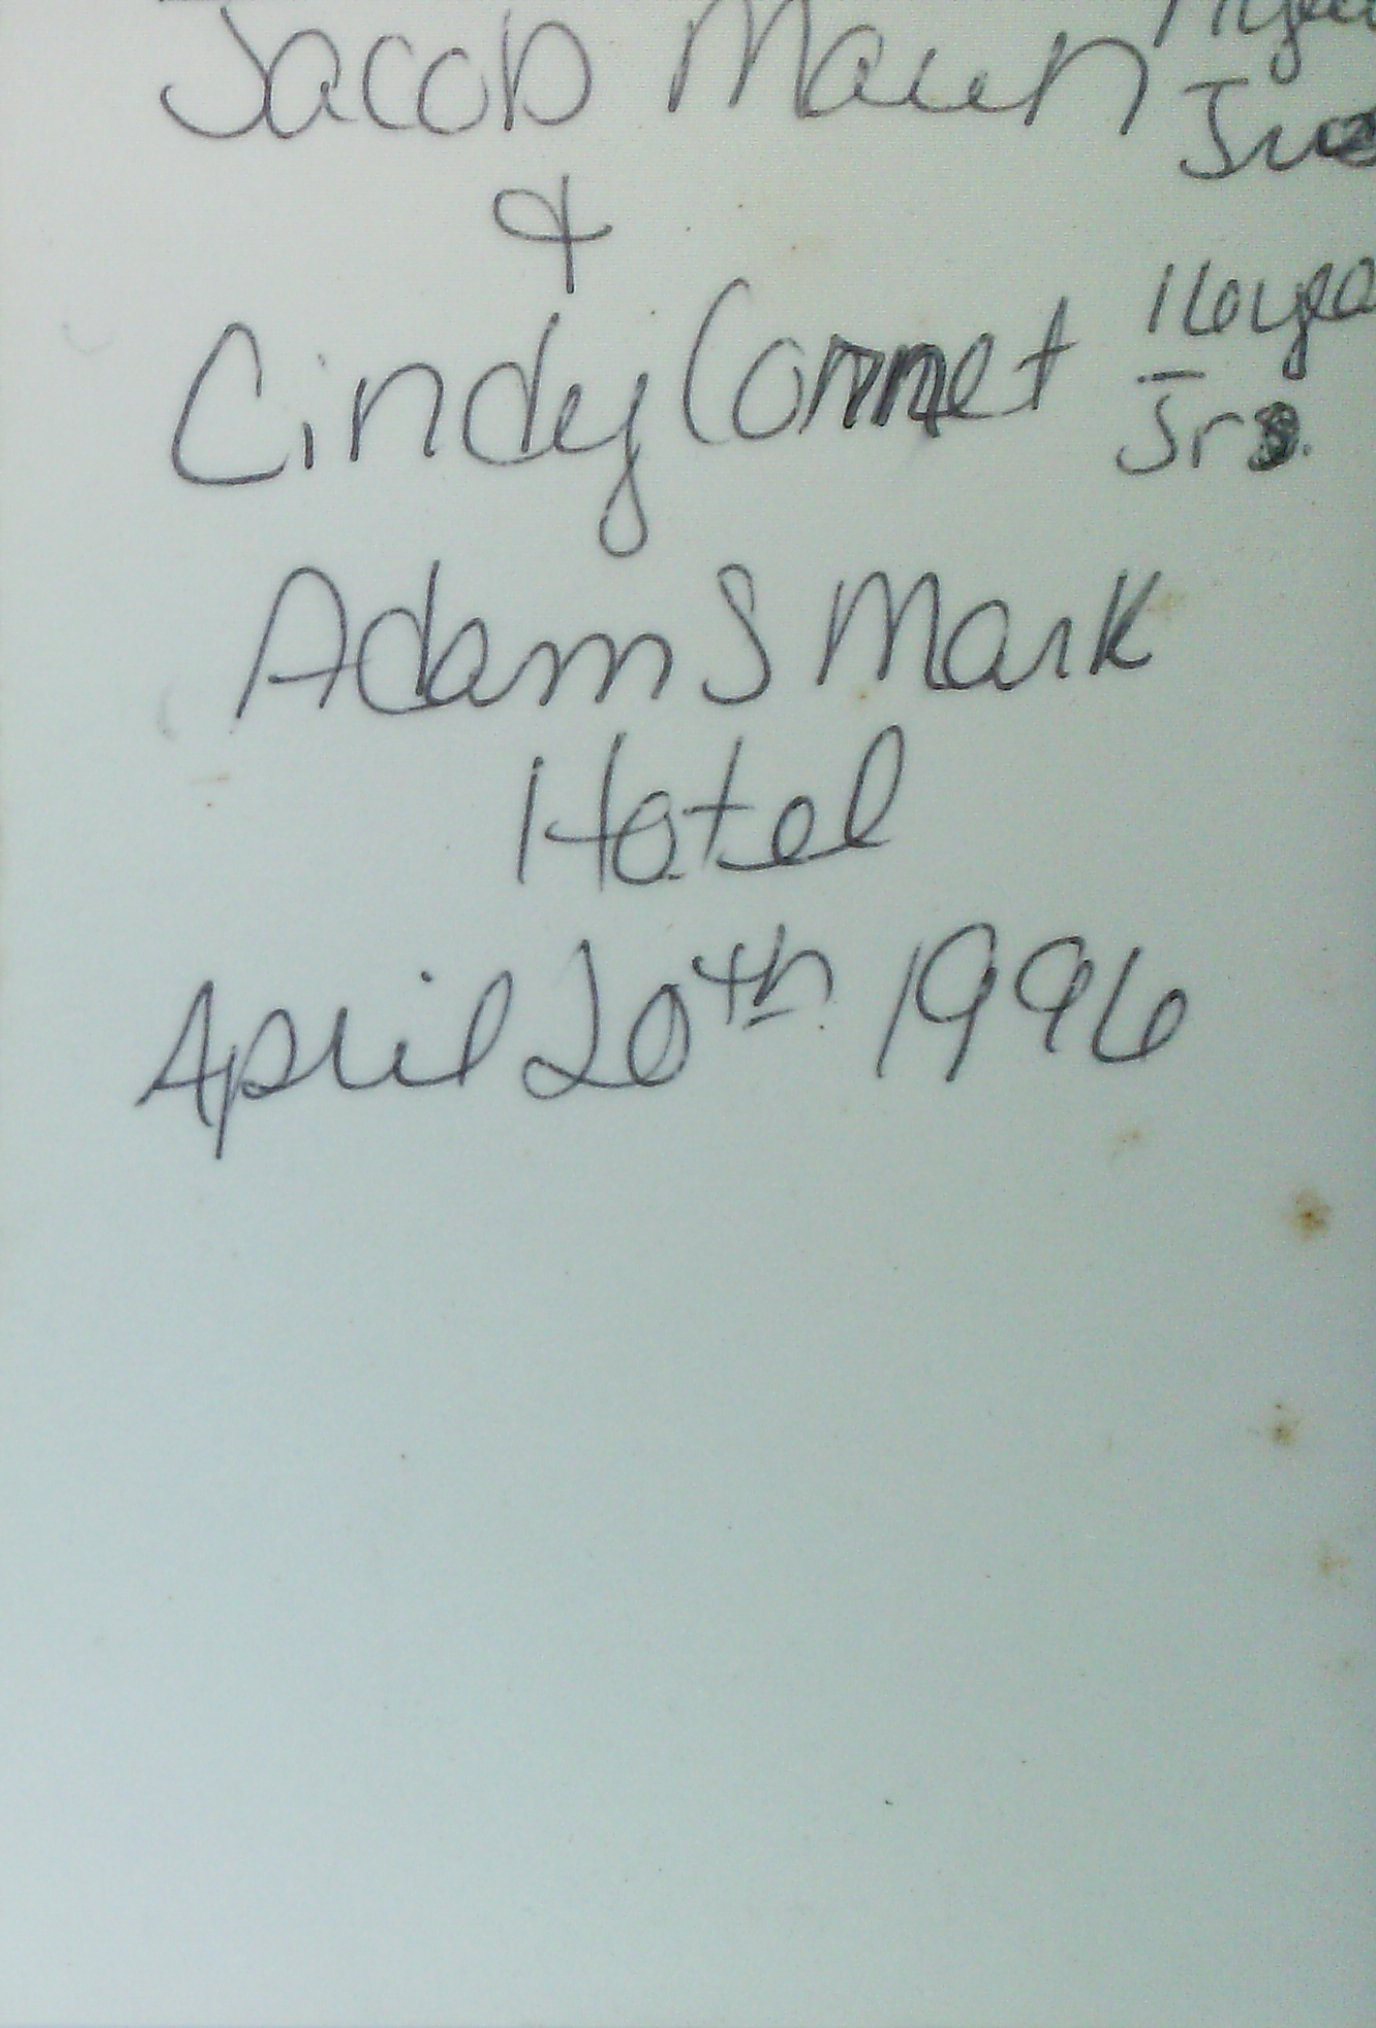 Jacob Maun
&
Cindy Cornet 16 yea
Jr
Adam S Mark
Hotel
April 20th 1996